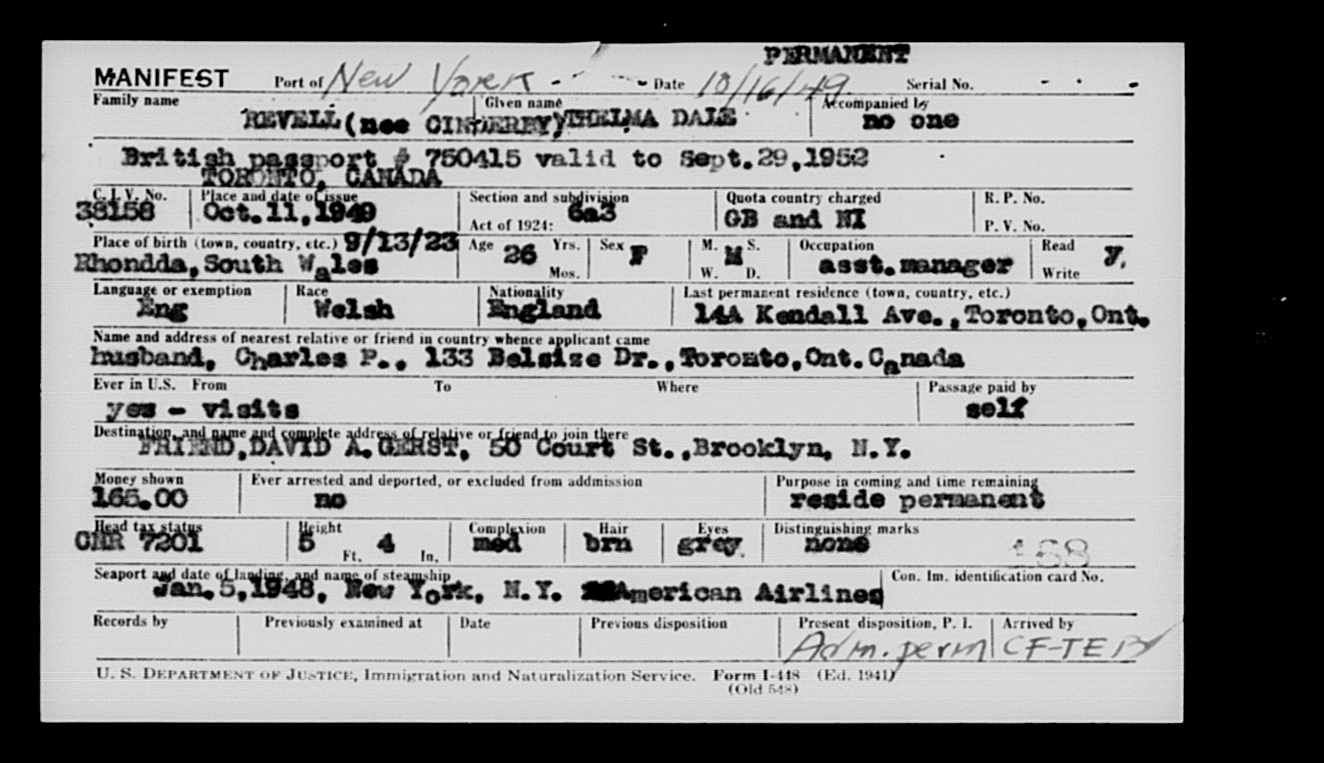 PERMANENT
MANIFEST Port of New York Date 10/16/49 Serial No.
Family name Given name Accompanied by
REVELL (nee CINDERBY) THELMA DALE no one
British passport # 750415 valid to Sept.29,1952
TORONTO, CANADA
C.I.V. No. Place and date of issue Section and subdivision Quota country charged R. P. No.
38158 Oct.11,1949 Act of 1924: 6a3 GB and NI P. V. No.
Place of birth (town, country, etc.) 9/13/23 Age 26 Yrs. Mos. Sex F M. S. W. D. M Occupation Read Write y.
Rhondda, South Wales asst.manager
Language or exemption Race Nationality Last permanent residence (town, country, etc.)
Eng Welsh England 14A Kendall Ave., Toronto, Ont.
Name and address of nearest relative or friend in country whence applicant came
husband, Charles P., 133 Belsize Dr., Toronto, Ont. Canada
Ever in U.S. From To Where Passage paid by
yes - visits self
Destination, and name and complete address of relative or friend to join there
FRIEND, DAVID A. GERST, 50 Court St., Brooklyn, N.Y.
Money shown Ever arrested and deported, or excluded from addmission Purpose in coming and time remaining
165.00 no reside permanent
Head tax status Height Complexion Hair Eyes Distinguishing marks
7201 5 Ft. 4 In. med brn grey none 168
Seaport and date of landing, and name of steamship Con. Im. identification card No.
Jan.5,1948, New York, N.Y. American Airlines
Records by Previously examined at Date Previous disposition Present disposition, P. I. Arrived by
Adm. perm
U. S. DEPARTMENT OF JUSTICE, Immigration and Naturalization Service. Form I-448 (Ed. 1941)
(Old 548)